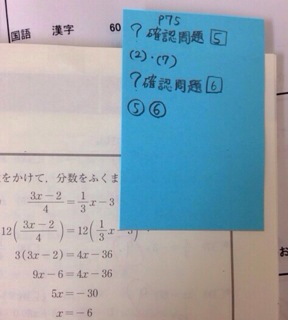 国語 漢字 60
P75
? 確認問題 5
(2)・(7)
? 確認問題 6
⑤ ⑥
をかけて,分数をふくま
3x-2/4=1/3x-3
12(3x-2/4)=12(1/3x-3)
3(3x-2)=4x-36
9x-6=4x-36
5x=-30
x=-6
お